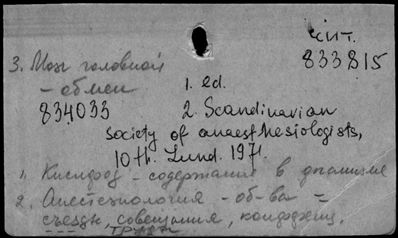 сист.
833815
3. Мозг головной
- обмен
834033
1. ed.
2. Scandinavian
society of anaesthesiologists,
10th. Lund. 1971.
1. Кислород - содержание в организме
2. Анестезиология - об-ва -
съезды, совещания, конференц.
труды